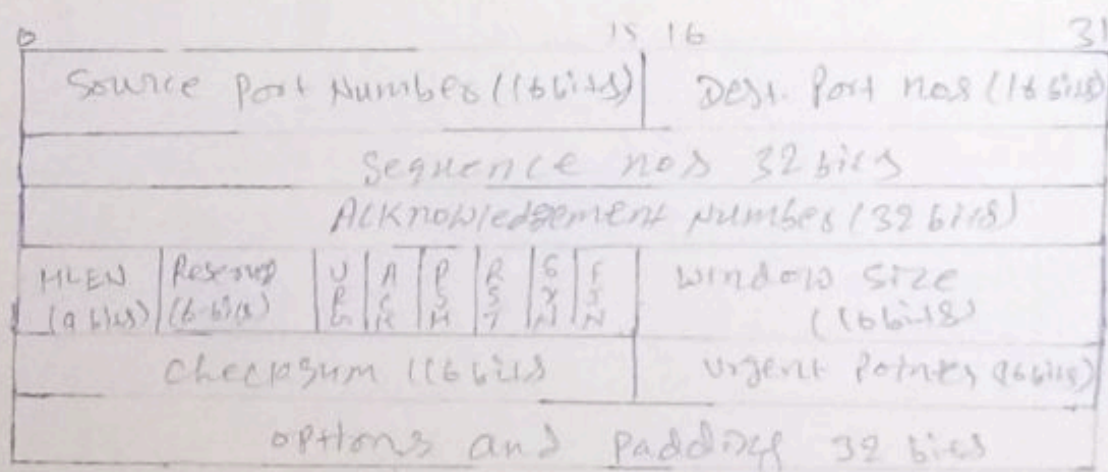 0 15 16 31
Source Port Number (16 bits) Dest. Port nos (16 bits)
Sequence nos 32 bits
Acknowledgement Number (32 bits)
HLEN Reserved URG ACK PSH RST SYN FIN Window Size
(4 bits) (6-bits) (16 bits)
Checksum (16 bits Urgent Pointer (16 bits)
options and padding 32 bits